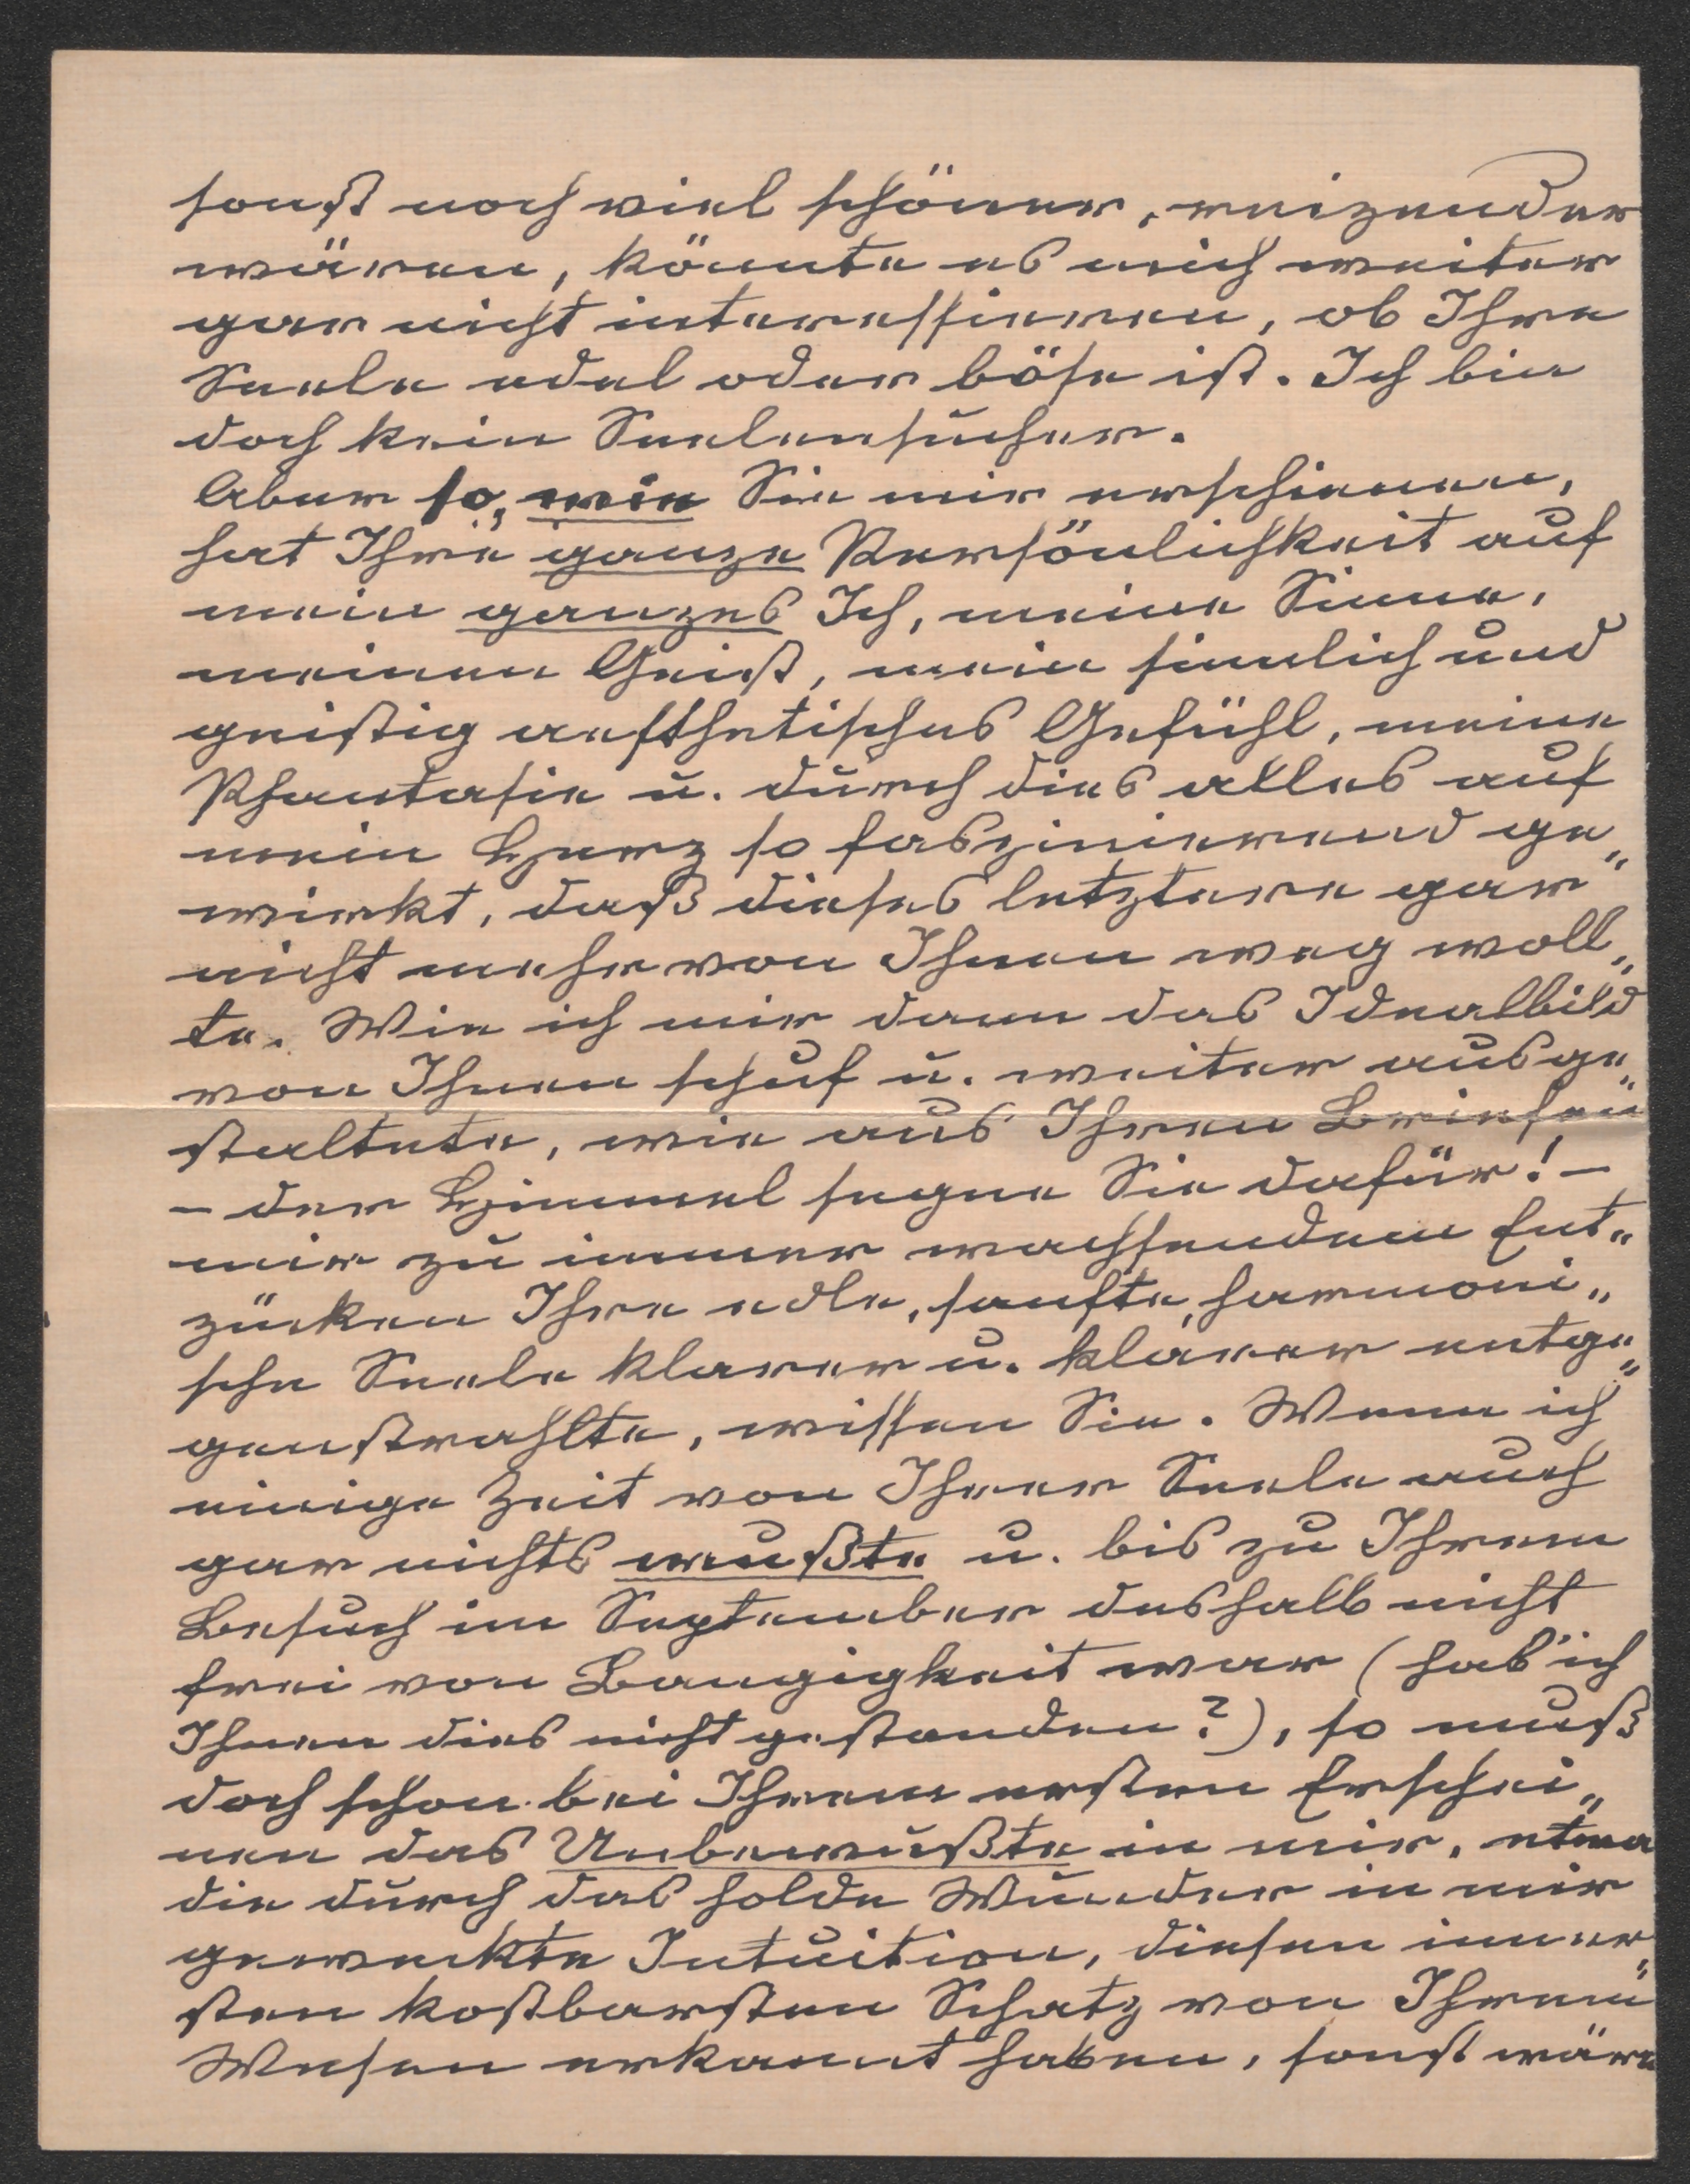 sonst noch viel schöner, reizender
wären, könnte es mich weiter
gar nicht interessieren, ob Ihre
Seele edel oder böse ist. Ich bin
doch kein Seelensucher.
Aber so, wie Sie mir erschienen,
hat Ihre ganze Persönlichkeit auf
mein ganzes Ich, meine Sinne,
meinen Geist, mein sinnlich und
geistig aesthetisches Gefühl, meine
Phantasie u. durch dies alles auf
mein Herz so faszinierend ge„
wirkt, daß dieses letztere gar
nicht mehr von Ihnen weg woll„
te. Wie ich mir dann das Idealbild
von Ihnen schuf u. weiter ausge„
staltete, wie aus Ihren Briefen
– der Himmel segne Sie dafür! –
mir zu immer wachsendem Ent„
zücken Ihre edle, sanfte, harmoni„
sche Seele klarer u. klarer entge„
genstrahlte, wissen Sie. Wenn ich
einige Zeit von Ihrer Seele auch
gar nichts wußte u. bis zu Ihrem
Besuch im September deshalb nicht
frei von Bangigkeit war (hab' ich
Ihnen dies nicht gestanden?), so muß
doch schon bei Ihrem ersten Erschei„
nen das Unbewußte in mir, etwa
die durch das holde Wunder in mir
geweckte Intuition, diesen inner„
sten kostbarsten Schatz von Ihrem
Wesen erkannt haben, sonst wäre